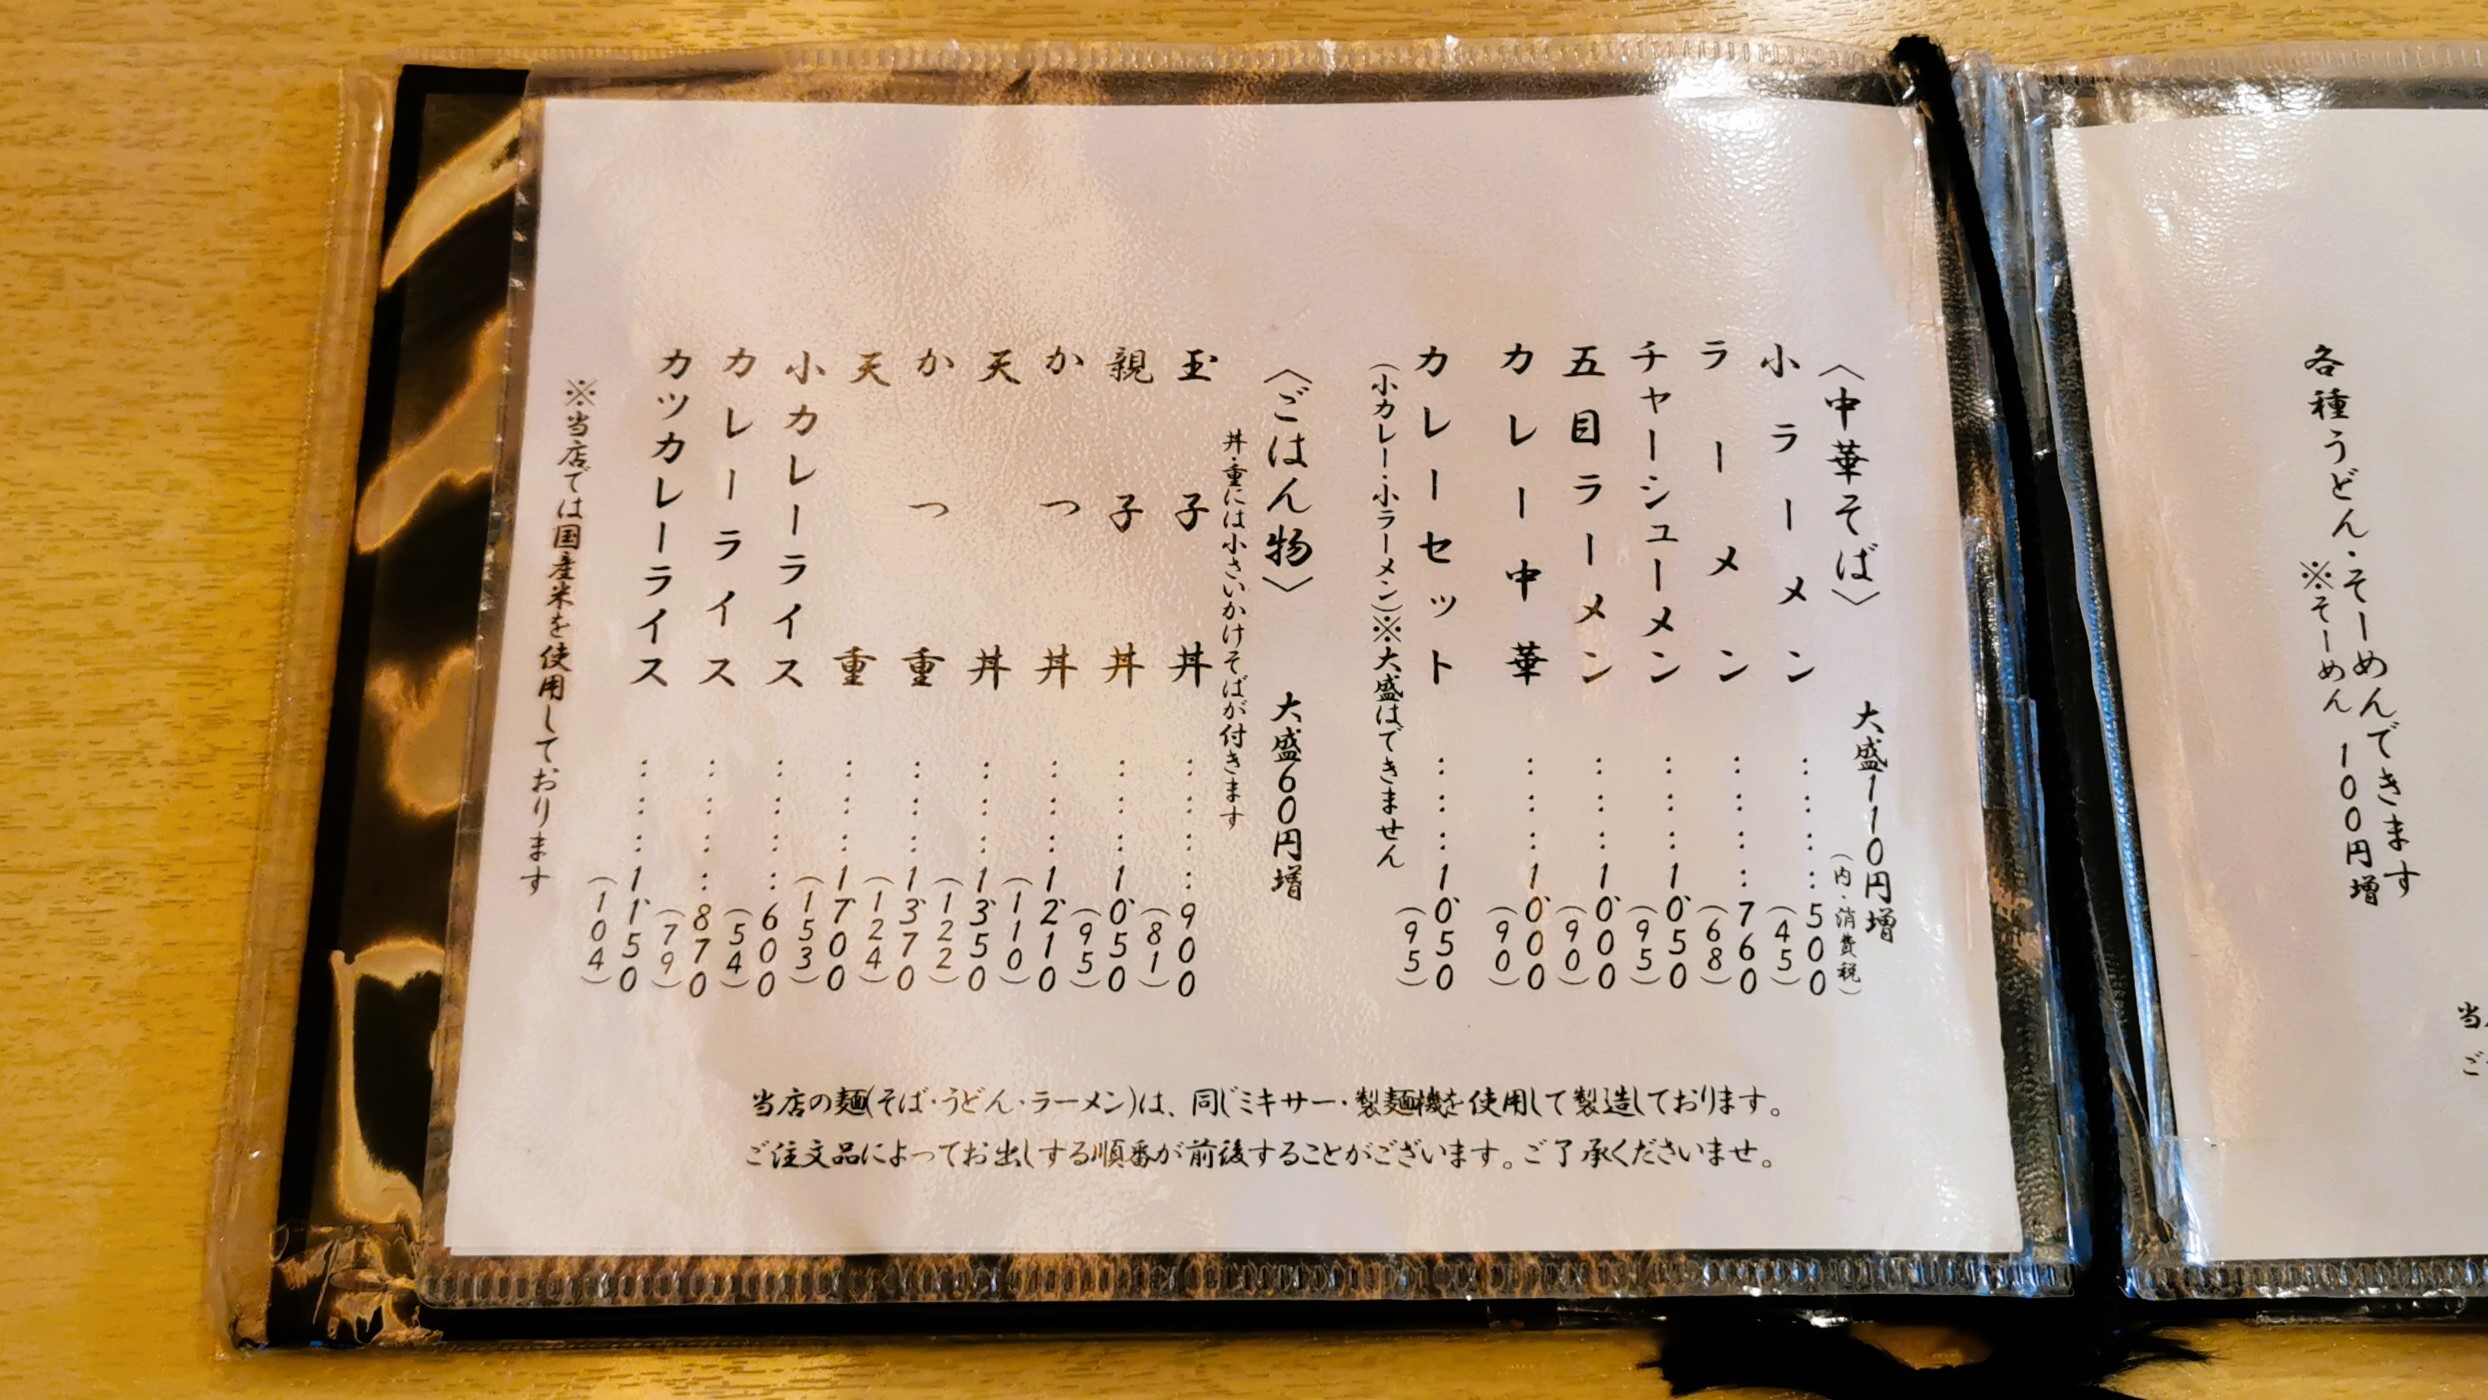 各種うどん・そーめんできます
※そーめん 100円増
〈中華そば〉 大盛110円増
(内・消費税)
小ラーメン ………… 500
(45)
ラーメン ………… 760
(68)
チャーシューメン ……… 1,050
(95)
五目ラーメン ……… 1,000
(90)
カレー中華 ……… 1,000
(90)
カレーセット ……… 1,050
(95)
(小カレー・小ラーメン)※大盛はできません
〈ごはん物〉 大盛60円増
丼・重には小さいかけそばが付きます
玉子丼 ………… 900
(81)
親子丼 ……… 1,050
(95)
かつ丼 ……… 1,210
(110)
天丼 ……… 1,350
(122)
かつ重 ……… 1,370
(124)
天重 ……… 1,700
(153)
小カレーライス ………… 600
(54)
カレーライス ………… 870
(79)
カツカレーライス ……… 1,150
(104)
※当店では国産米を使用しております
当店の麺(そば・うどん・ラーメン)は、同じミキサー・製麺機を使用して製造しております。
ご注文品によってお出しする順番が前後することがございます。ご了承くださいませ。